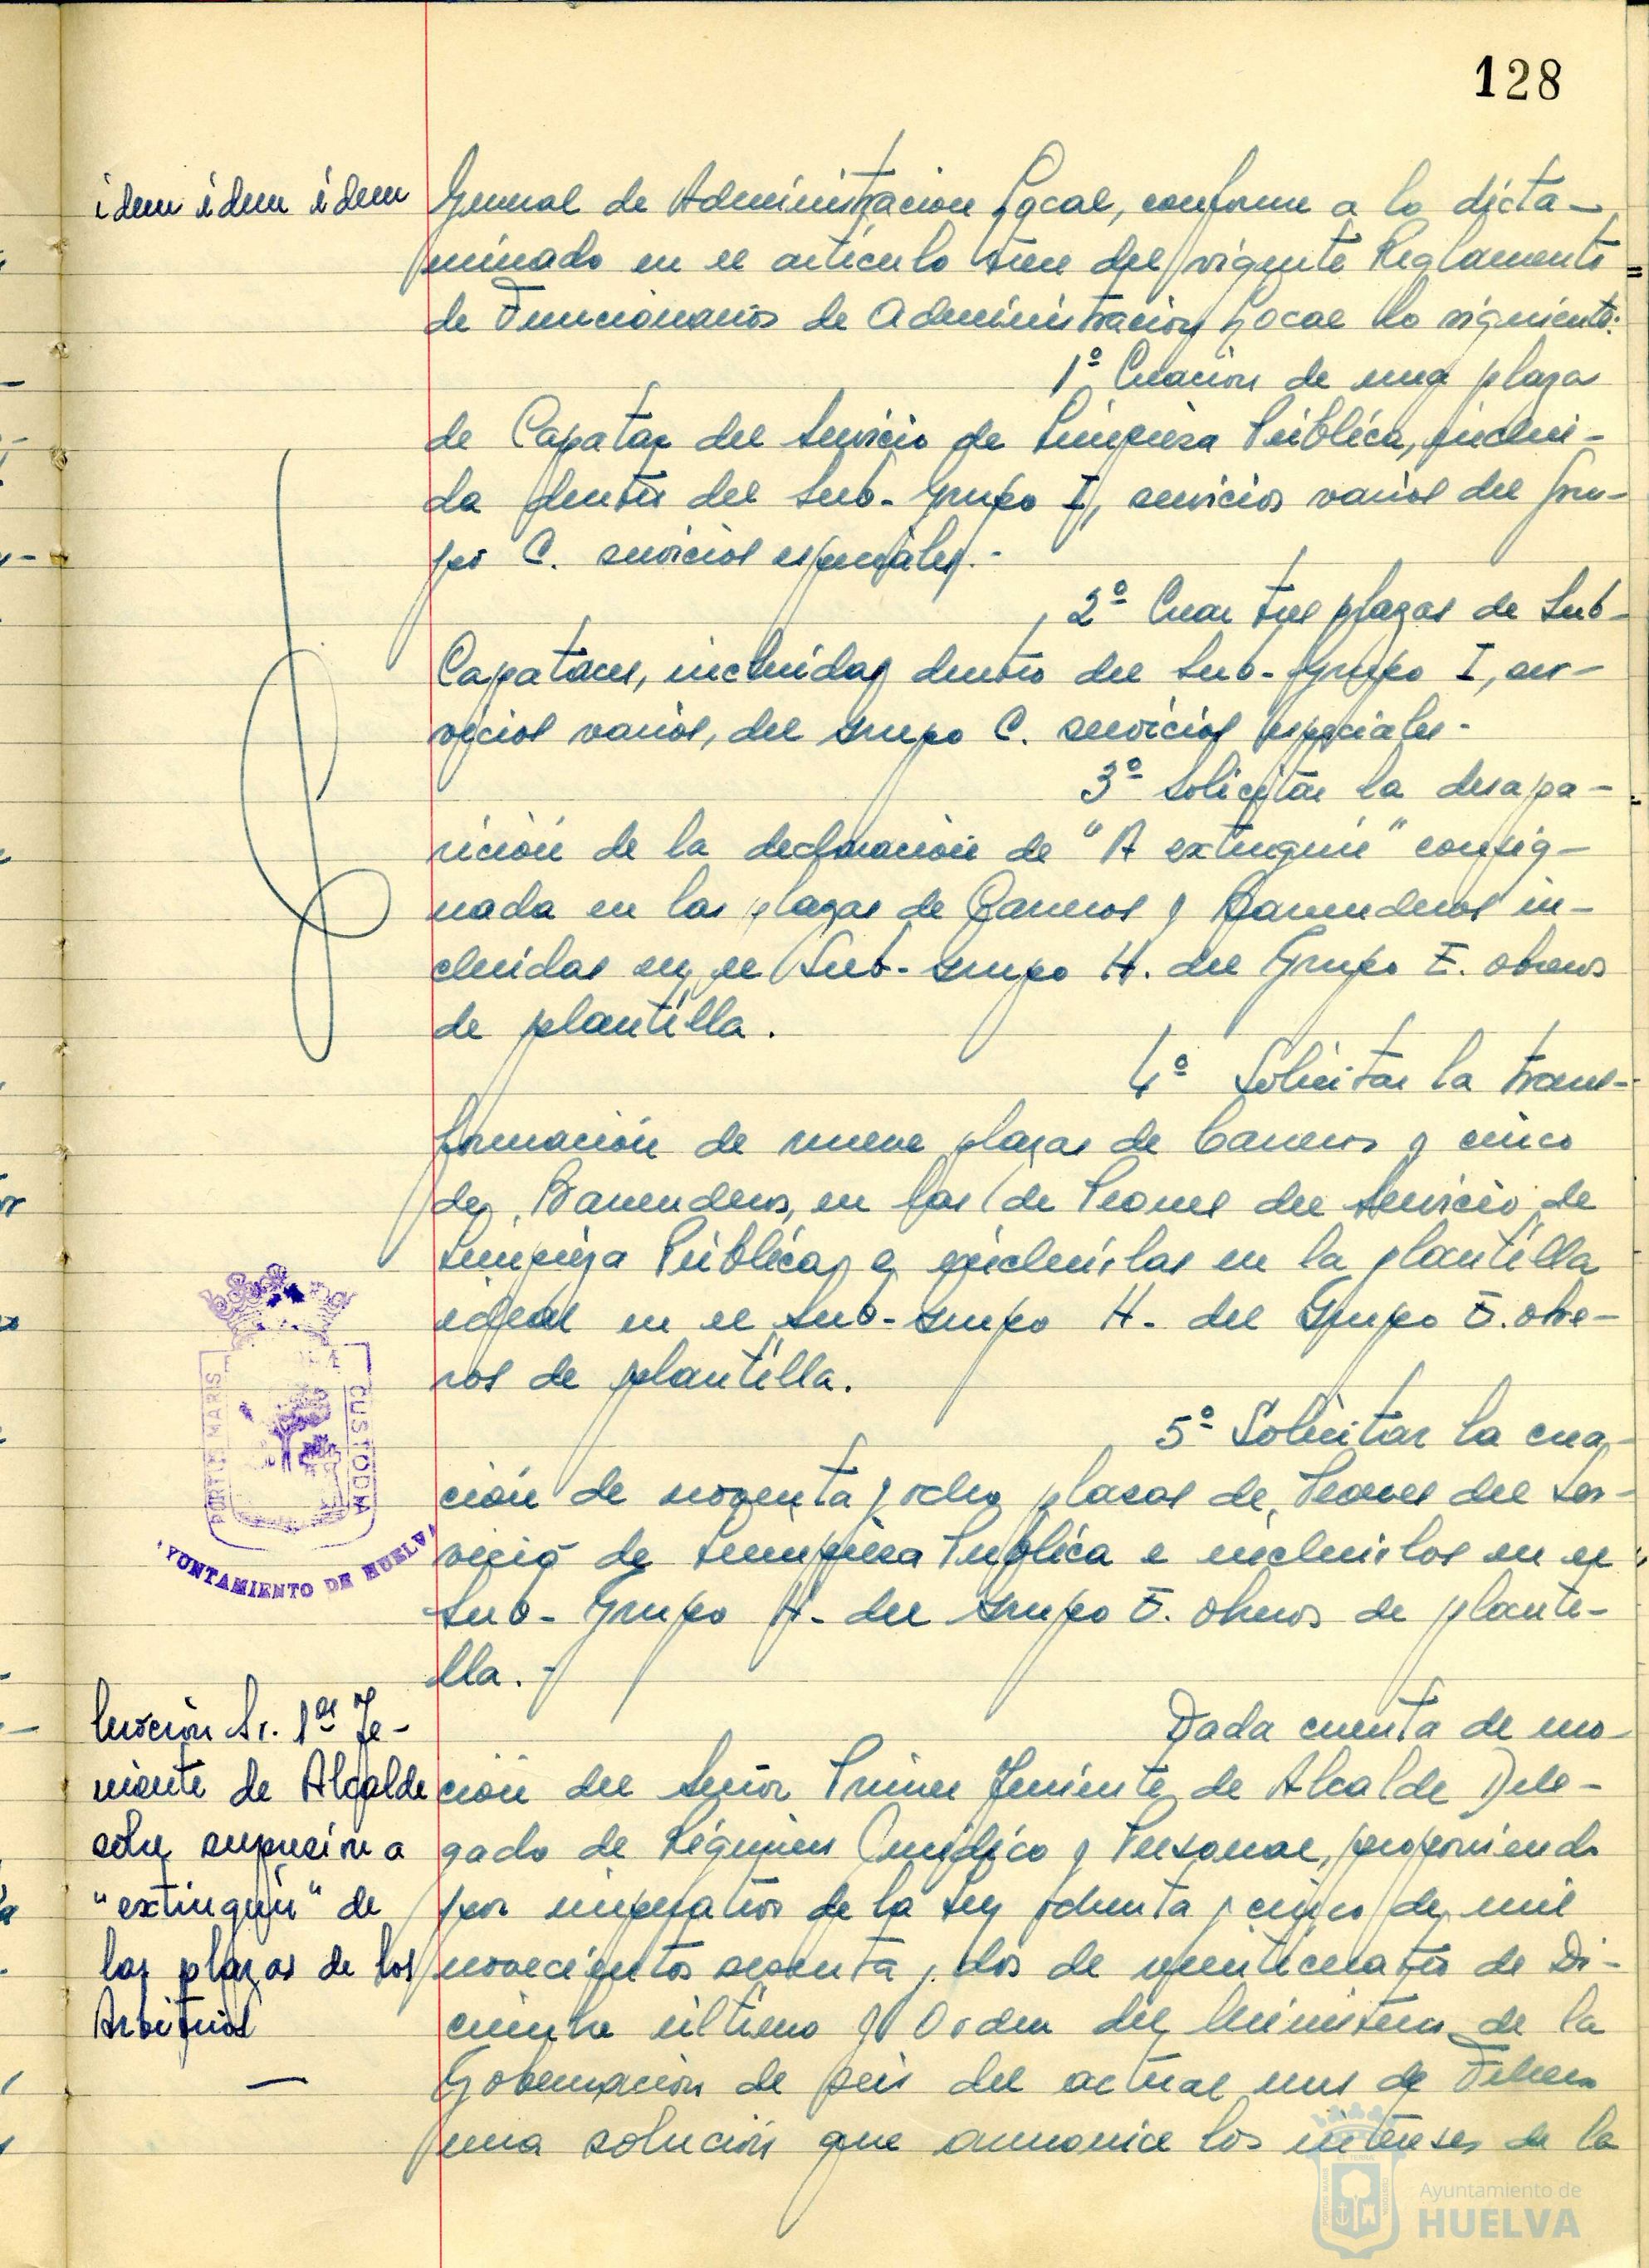 128
idem idem idem
General de Administracion Local, conforme a lo dicta-
minado en el articulo trece del vigente Reglamento
de Funcionarios de Administracion Local lo siguiente:
1º Creación de una plaza
de Capataz del Servicio de Limpieza Pública, inclui-
da dentro del Sub-Grupo I, servicios varios del Gru-
po C. servicios especiales.-
2º Crear tres plazas de Sub-
Capataces, incluidas dentro del Sub-Grupo I, ser-
vicios varios, del Grupo C. servicios especiales-
3º Solicitar la desapa-
rición de la declaración de "A extinguir" consig-
nada en las plazas de Carreros y Barrenderos in-
cluidas en el Sub-Grupo H. del Grupo E. obreros
de plantilla.
4º Solicitar la trans-
formación de nueve plazas de Carreros y cinco
de Barrenderos, en las de Peones del Servicio de
Limpieza Pública, e incluirlas en la plantilla
ideal en el Sub-Grupo H- del Grupo E. obre-
ros de plantilla.
5º Solicitar la crea-
ción de noventa y ocho plazas de Peones del Ser-
vicio de Limpieza Publica e incluirlos en el
Sub-Grupo H- del Grupo E. obreros de planti-
lla.-
PORTUS MARIS
CUSTODIA
AYUNTAMIENTO DE HUELVA
Moción Sr. 1er Te-
niente de Alcalde
sobre supresión a
"extinguir" de
las plazas de los
Arbitrios
Dada cuenta de mo-
ción del Señor Primer Teniente de Alcalde Dele-
gado de Régimen Jurídico y Personal, proponiendo
por imperativo de la Ley ochenta y cinco de mil
novecientos sesenta y dos de veinticuatro de Di-
ciembre último y Orden del Ministerio de la
Gobernación de seis del actual mes de Febrero
una solución que armonice los intereses de la
Ayuntamiento de
HUELVA